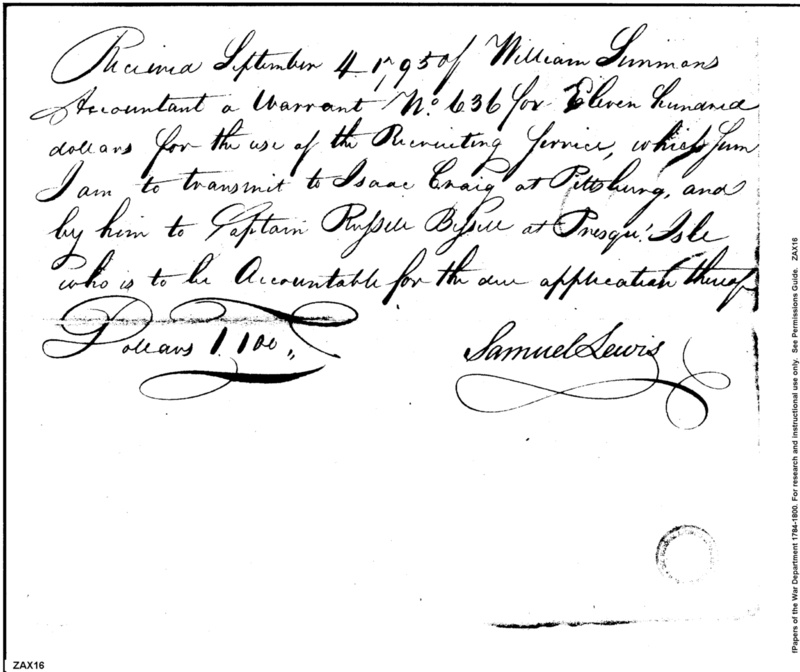 Received September 4 1795 of William Simmons
Accountant a Warrant No. 636 for Eleven hundred
dollars for the use of the Recruiting Service, which sum
I am to transmit to Isaac Craig at Pittsburg, and
by him to Captain Russell Bissell at Presqu' Isle
who is to be Accountable for the due application thereof
Dollars 1.100,,
Samuel Lewis
fPapers of the War Department 1784-1800. For research and instructional use only. See Permissions Guide. ZAX16
ZAX16